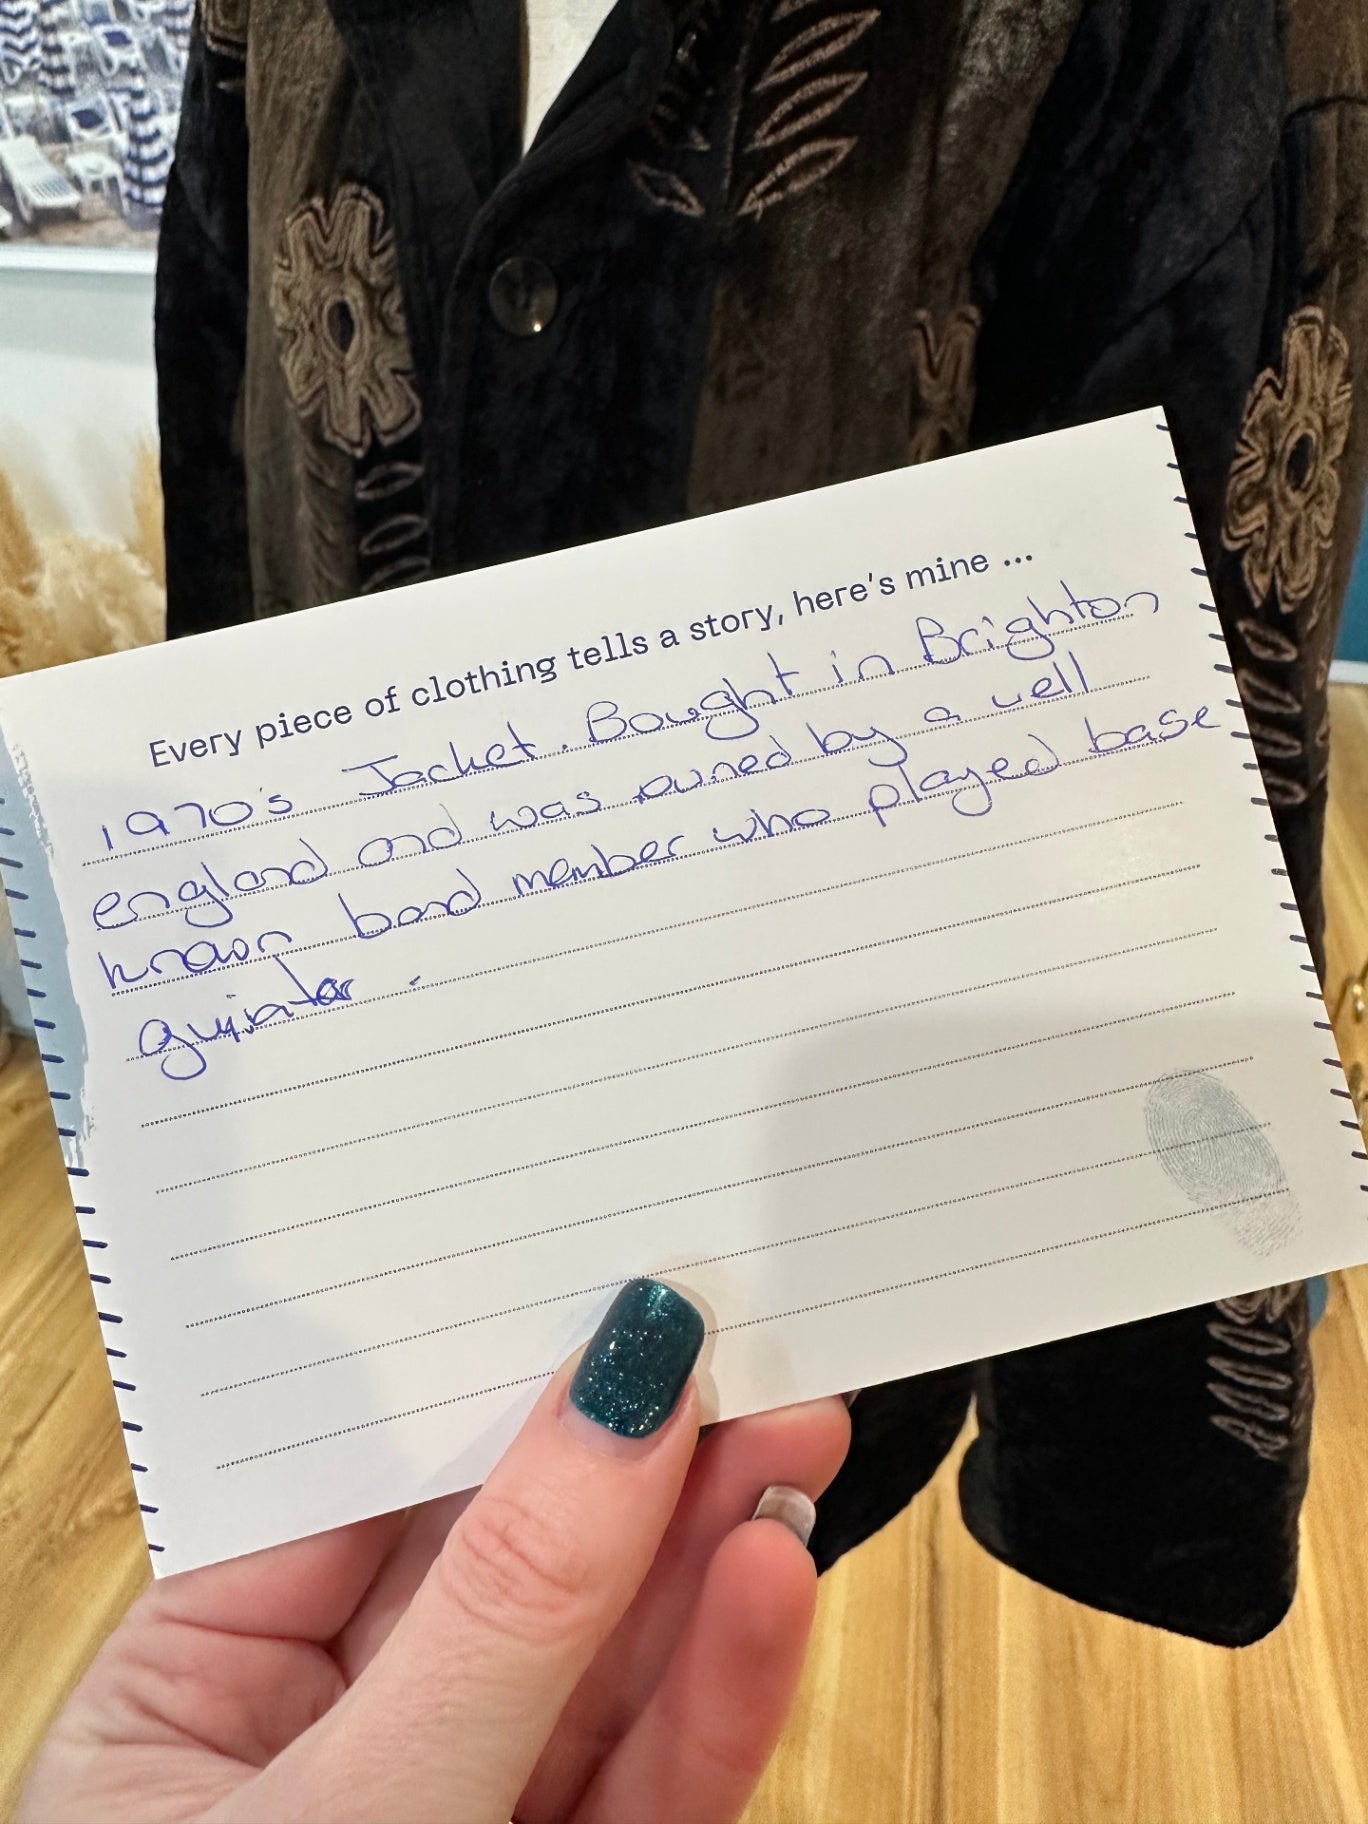 Every piece of clothing tells a story, here's mine ...
1970's Jacket. Bought in Brighton
england and was owned by a well
known band member who played base
guitar.